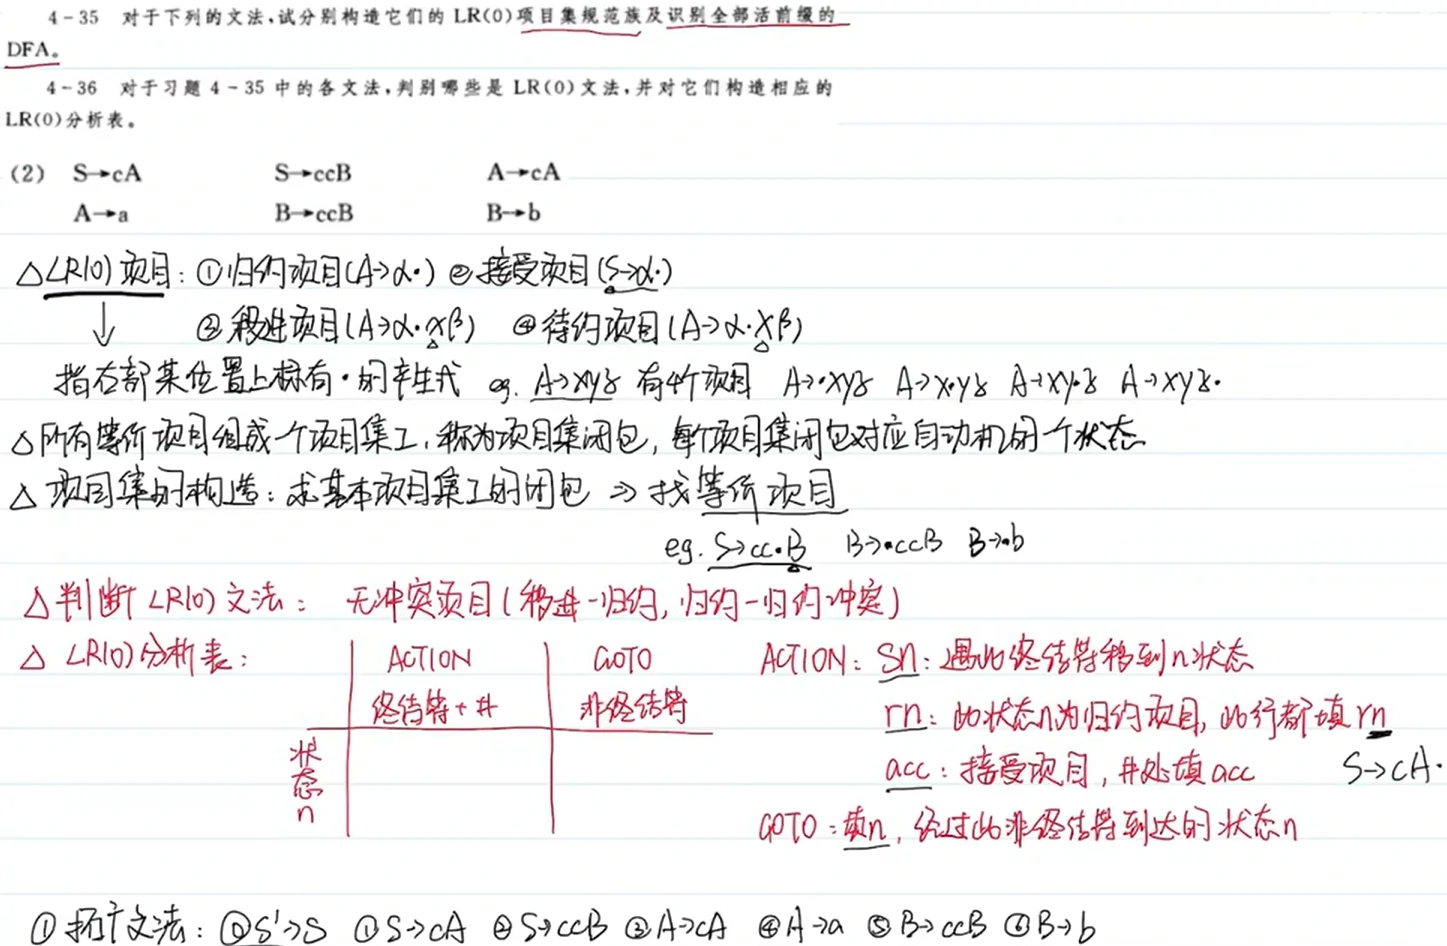 4-35 对于下列的文法,试分别构造它们的 LR(0)项目集规范族及识别全部活前缀的
DFA。
4-36 对于习题 4-35 中的各文法,判别哪些是 LR(0)文法,并对它们构造相应的
LR(0)分析表。
(2) S→cA S→ccB A→cA
A→a B→ccB B→b
△LR(0)项目: ①归约项目(A→α·) ②接受项目(S→α·)
③移进项目(A→α·xβ) ④待约项目(A→α·Xβ)
↓
指右部某位置上标有·的产生式 eg. A→xyz 有4个项目 A→·xyz A→x·yz A→xy·z A→xyz·
△所有等价项目组成一个项目集I,称为项目集闭包,每个项目集闭包对应自动机的一个状态
△项目集的构造:求基本项目集I的闭包 ⇒ 找等价项目
eg. S→cc·B B→·ccB B→·b
△判断LR(0)文法: 无冲突项目(移进-归约,归约-归约冲突)
△ LR(0)分析表: ACTION GOTO ACTION: Sn: 遇此终结符移到n状态
终结符+# 非终结符 rn: 此状态n为归约项目,此行都填rn
状态n acc: 接受项目,#处填acc S→cA·
GOTO:填n,经过此非终结符到达的状态n
①拓广文法: ⓪S'→S ①S→cA ②S→ccB ③A→cA ④A→a ⑤B→ccB ⑥B→b